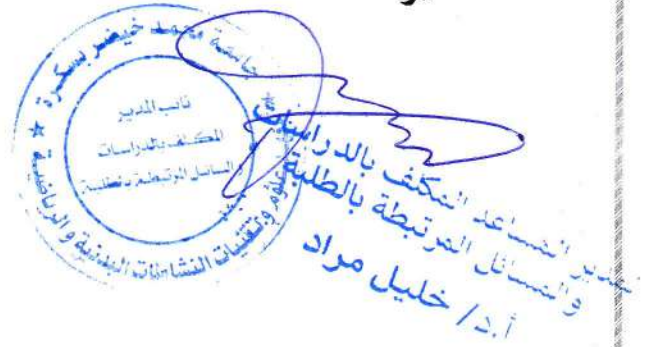 جامعة محمد خيضر بسكرة
نائب المدير
المكلف بالدراسات
و المسائل المرتبطة بالطلبة
علوم وتقنيات النشاطات البدنية و الرياضية
المدير المساعد المكلف بالدراسات
و المسائل المرتبطة بالطلبة
أ.د/ خليل مراد